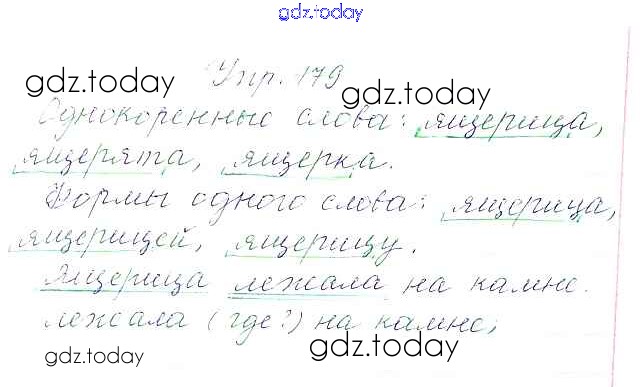 gdz.today
Упр. 179
gdz.today
gdz.today
Однокоренные слова: ящерица,
ящерята, ящерка.
Формы одного слова: ящерица,
ящерицей, ящерицу.
Ящерица лежала на камне.
лежала (где?) на камне;
gdz.today
gdz.today